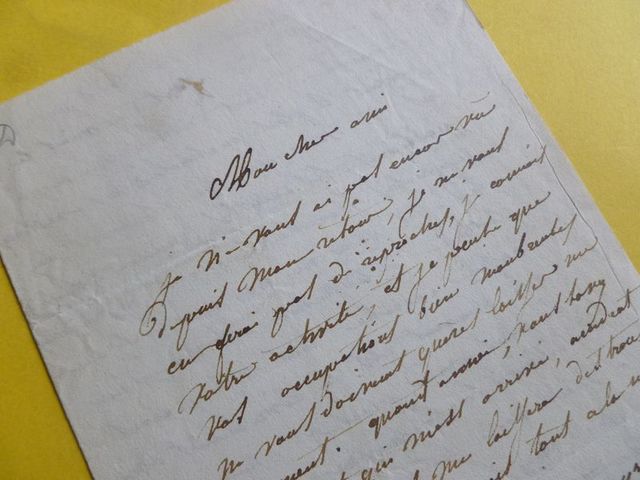 Mon cher ami
je ne vous ai pas encor vu
depuis mon retour, je ne vous
en ferai pas de reproches, je connois
votre activité, et je pense que
vos occupations bien nombreuses
ne vous doivent guères laisser un
moment. quant à moi,
qui m'est arrivé, accident
me laissera des
tout a la